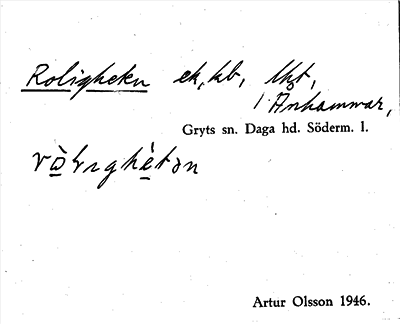 Roligheten ek, hb, lht,
i Änhammar,
Gryts sn. Daga hd. Söderm. l.
Artur Olsson 1946.